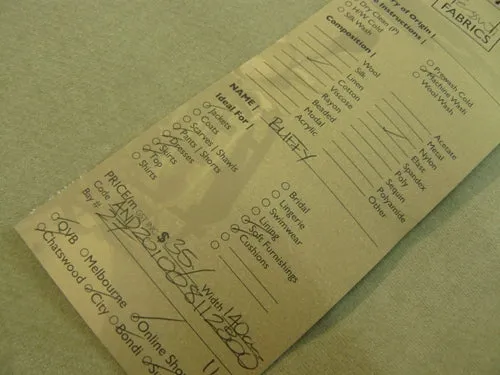 FABRICS
ry of Origin |
Instructions |
Dry Clean (P)
H/W Cold
Silk Wash
Prewash Cold
Machine Wash
Wool Wash
Composition |
Wool
Silk
Linen
Cotton
Viscose
Rayon
Beaded
Modal
Acrylic
Acetate
Metal
Nylon
Elast
Spandex
Poly
Sequin
Polyamide
Other
NAME |
Ideal For |
Jackets
Coats
Scarves | Shawls
Pants | Shorts
Dresses
Skirts
Top
Shirts
Bridal
Lingerie
Swimwear
Lining
Soft Furnishings
Cushions
PRICE/m
$ 35/
Width 140cm
Code
Buy #
QVB
Melbourne
Online Sho
Chatswood
City
Bondi